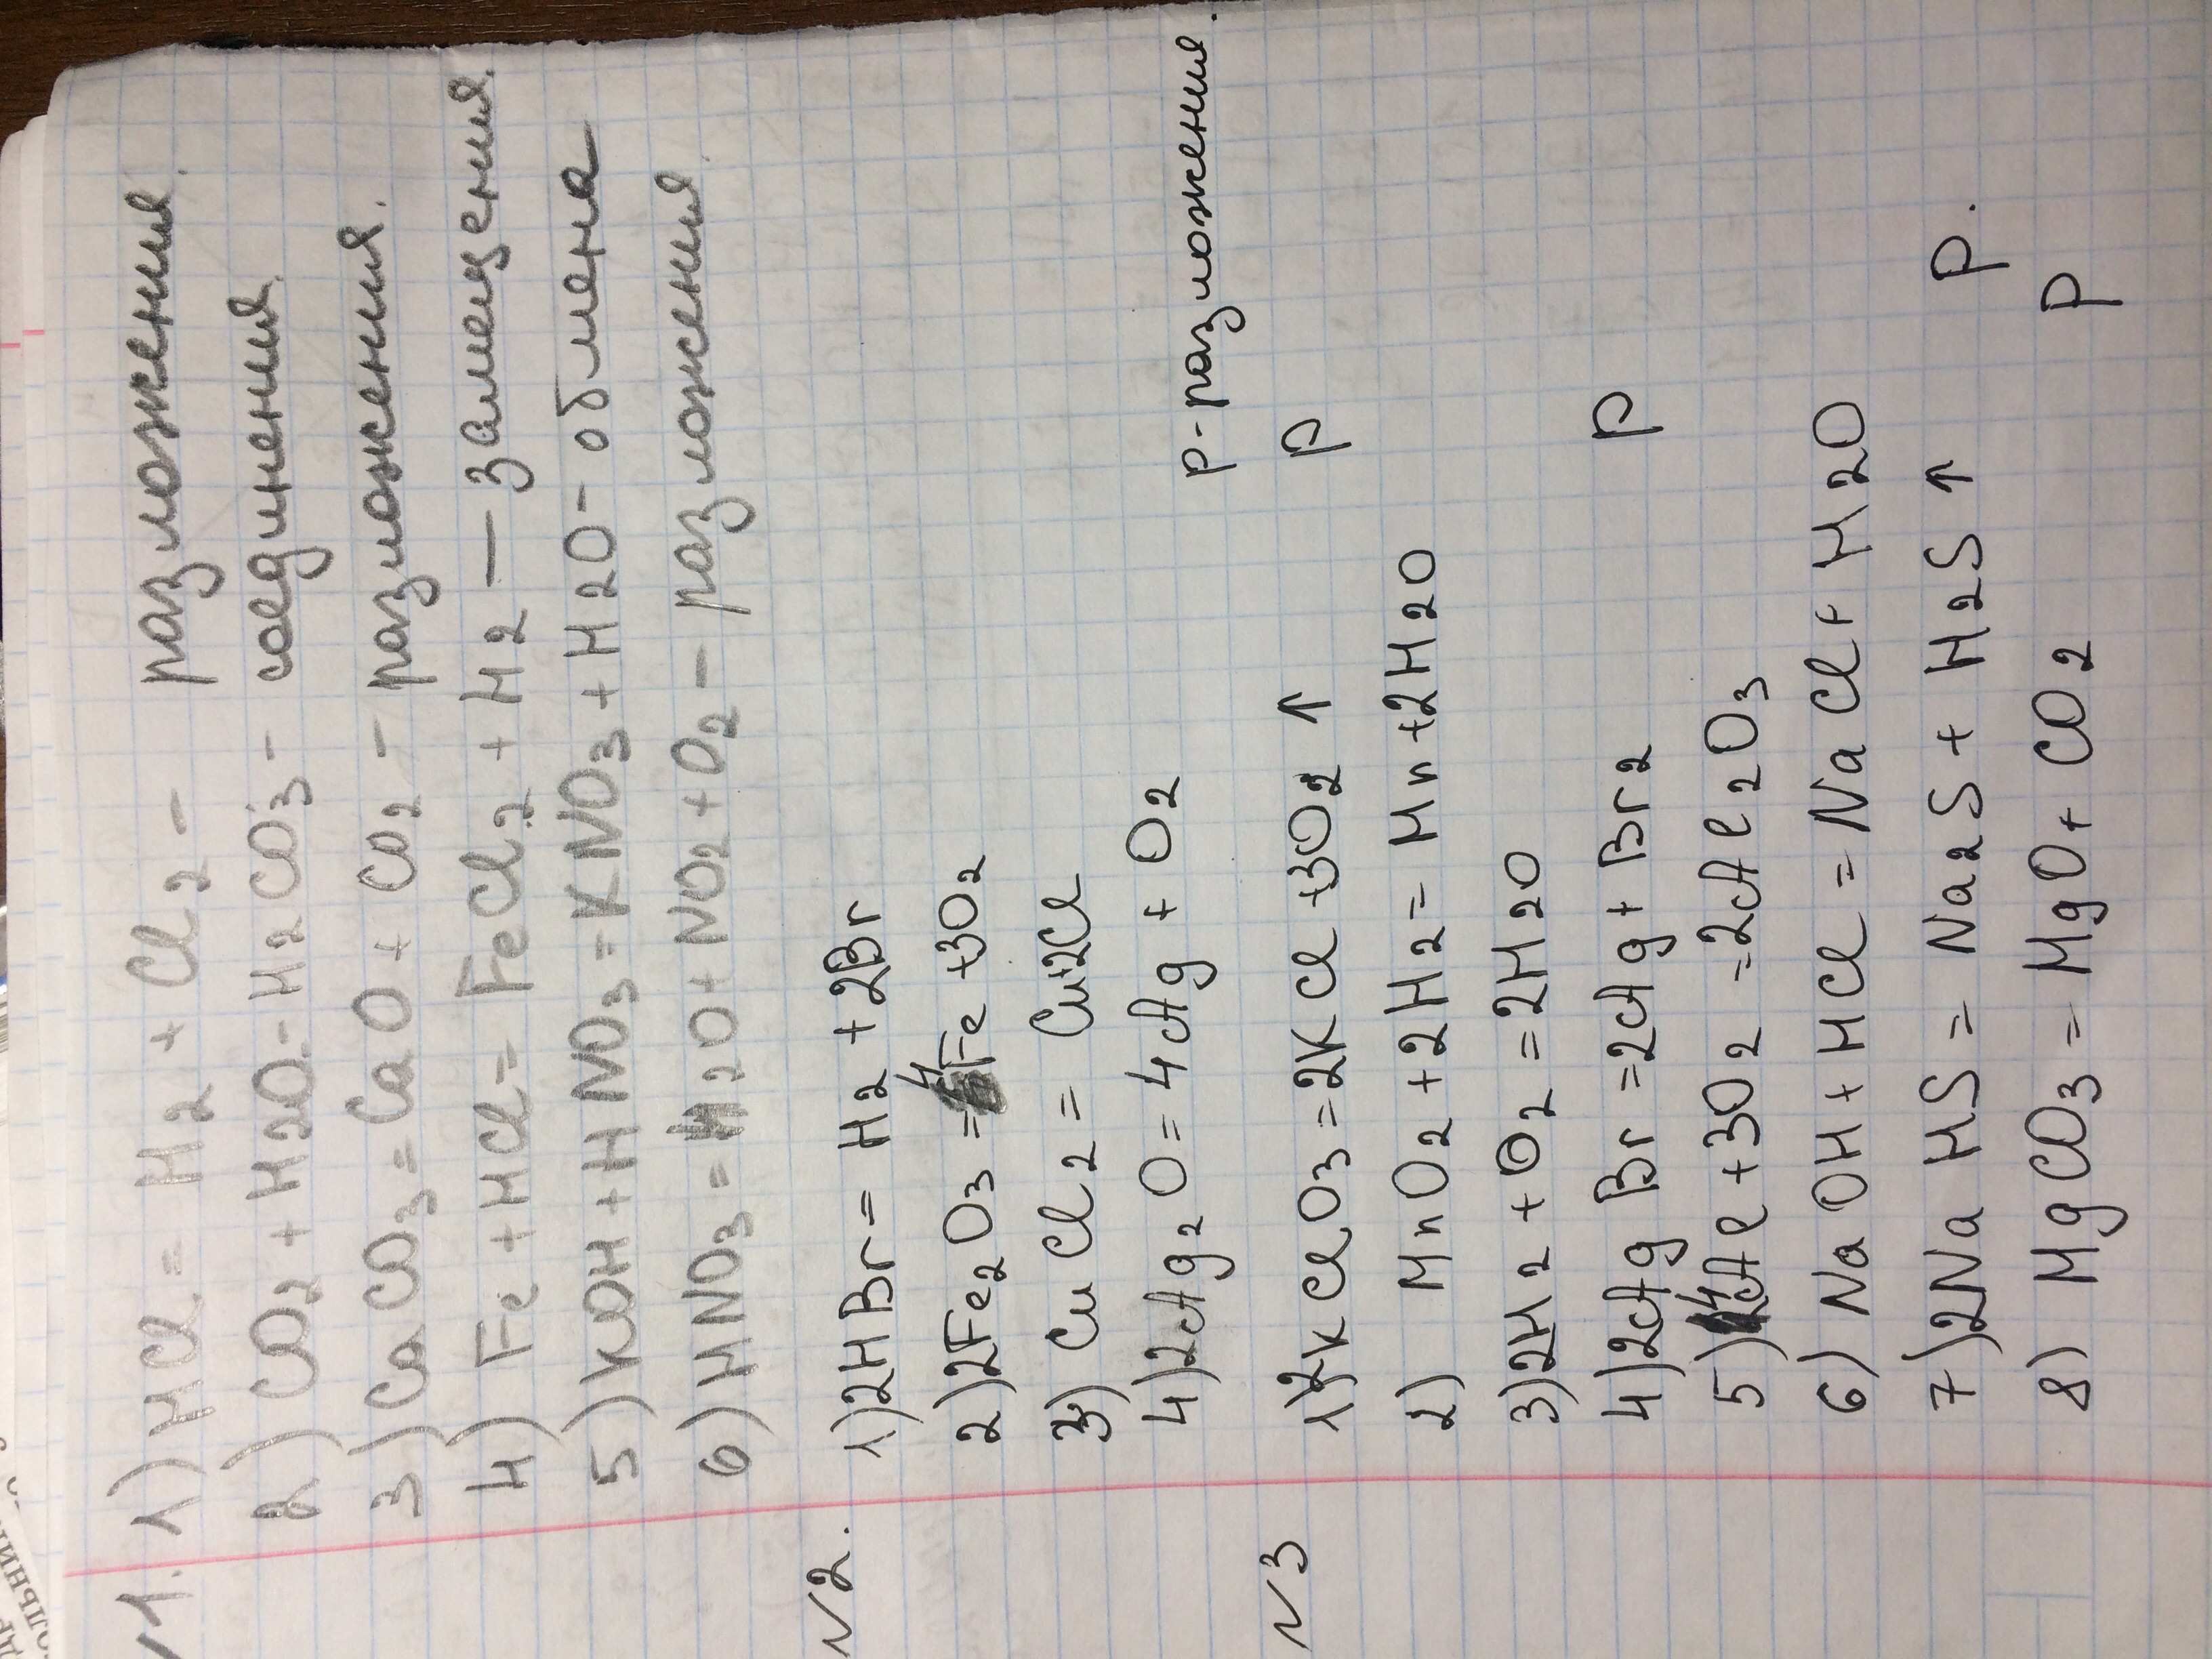 √1. 1) HCl = H2 + Cl2 - разложения.
2) CO2 + H2O - H2CO3 - соединения.
3) CaCO3 = CaO + CO2 - разложения.
4) Fe + HCl = FeCl2 + H2 — замещения.
5) KOH + HNO3 = KNO3 + H2O - обмена
6) HNO3 = H2O + NO2 + O2 - разложения.
√2. 1) 2HBr = H2 + 2Br
2) 2Fe2O3 = 4Fe + 3O2
3) CuCl2 = Cu+2Cl
4) 2Ag2O = 4Ag + O2
р-разложения.
√3 1) 2KClO3 = 2KCl + 3O2 ↑ р
2) MnO2 + 2H2 = Mn + 2H2O
3) 2H2 + O2 = 2H2O
4) 2AgBr = 2Ag + Br2 р
5) 4Al + 3O2 = 2Al2O3
6) NaOH + HCl = NaCl + H2O
7) 2NaHS = Na2S + H2S ↑ р.
8) MgCO3 = MgO + CO2 р